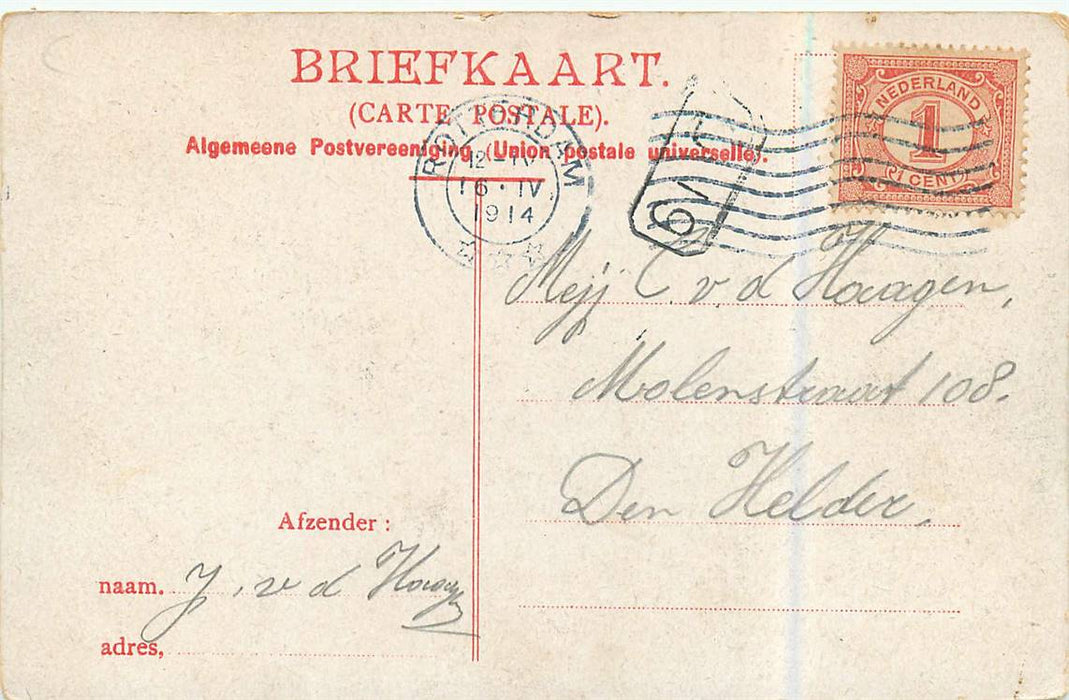 BRIEFKAART.
(CARTE POSTALE).
Algemeene Postvereeniging (Union postale universelle).
NEDERLAND
1
1 CENT
ROTTERDAM
12-IV
16·IV
1914
Mejj C. v. d Haagen,
Molenstraat 108.
Den Helder.
Afzender :
naam. J. v d Haagen
adres,